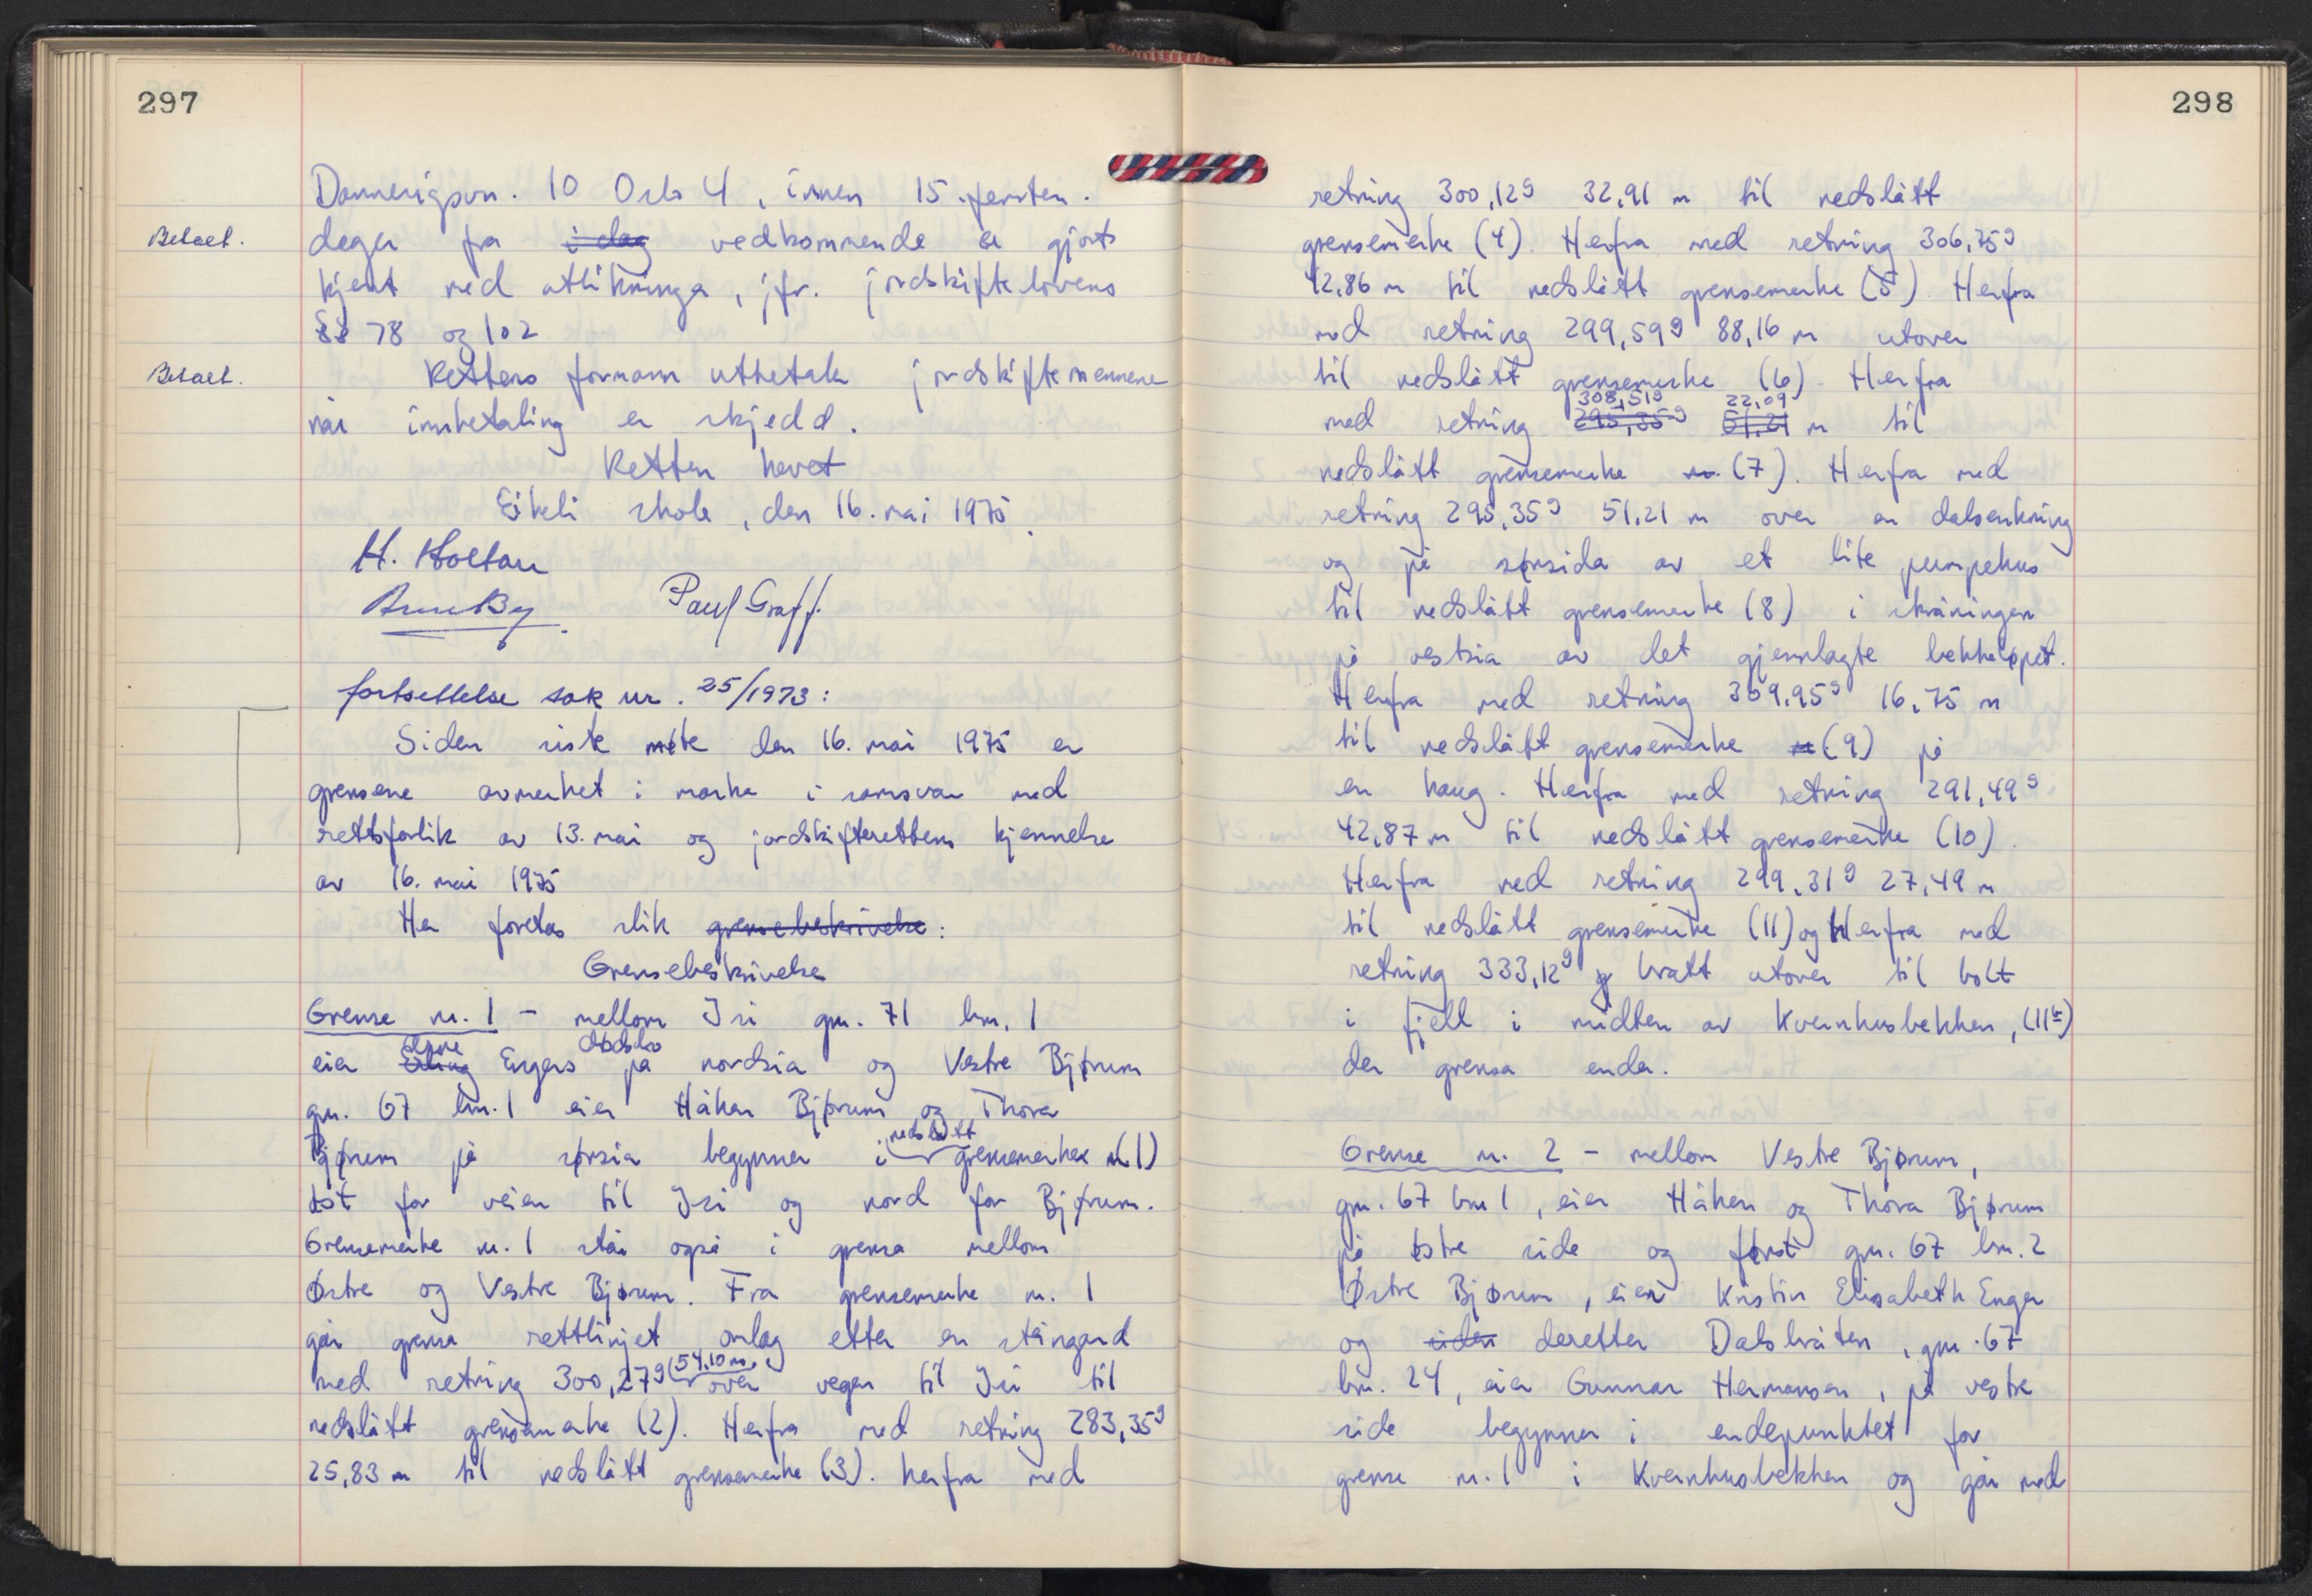 297
Dronningsvn. 10 Oslo 4, innen 15 femten.
Betalt.
dager fra i dag vedkommende er gjort
kjent med utlikninga, jfr. jordskiftelovens
§§ 78 og 102
Betalt.
Rettens formann utbetaler jordskiftemennene
når innbetaling er skjedd.
Retten hevet
Eikeli skole, den 16. mai 1975.
H. Holtan
Paul Graff.
fortsettelse sak nr. 25/1973:
Siden siste møte den 16. mai 1975 er
grensene avmerket i marka i samsvar med
rettsforlik av 13. mai og jordskifterettens kjennelse
av 16. mai 1975
Her foretas slik grensebeskrivelse:
Grensebeskrivelse
Grense nr. 1 - mellom Isi gnr. 71 bnr. 1
dødsbo
eier Erling Engers på nordsia og Vestre Bjørum
gnr. 67 bnr. 1 eier Håken Bjørum og Thora
nedslått
Bjørum på sørsia begynner i grensemerke nr (1)
øst for veien til Isi og nord for Bjørum.
Grensemerke nr. 1 står også i grensa mellom
Østre og Vestre Bjørum. Fra grensemerke nr. 1
går grensa rettlinjet omlag etter en steingard
54,10 m,
med retning 300,27g over vegen til Isi til
nedslått grensemerke (2). Herfra med retning 283,35g
25,83 m til nedslått grensemerke (3). herfra med
298
retning 300,12g 32,91 m til nedslått
grensemerke (4). Herfra med retning 306,75g
42,86 m til nedslått grensemerke (5). Herfra
med retning 299,59g 88,16 m utover
til nedslått grensemerke (6). Herfra
308,51g 22,09
med retning 295,35g 51,21 m til
nedslått grensemerke nr. (7). Herfra med
retning 295,35g 51,21 m over en dalsenkning
og på sørsida av et lite pumpehus
til nedslått grensemerke (8) i skråningen
på vestsia av det gjenlagte bekkeløpet.
Herfra med retning 309,95g 16,75 m
til nedslått grensemerke nr (9) på
en haug. Herfra med retning 291,49g
42,87 m til nedslått grensemerke (10).
Herfra med retning 299,31g 27,49 m
til nedslått grensemerke (11) og Herfra med
retning 333,12g og bratt utover til bolt
i fjell i midten av Kvernhusbekken, (11b)
der grensa ender.
Grense nr. 2 - mellom Vestre Bjørum,
gnr. 67 bnr 1, eier Håken og Thora Bjørum
på østre side og først gnr. 67 bnr. 2
Østre Bjørum, eier Kristin Elisabeth Enger
og siden deretter Dalsbråten, gnr. 67
bnr. 24, eier Gunnar Hermansen, på vestre
side begynner i endepunktet for
grense nr. 1 i Kvernhusbekken og går med